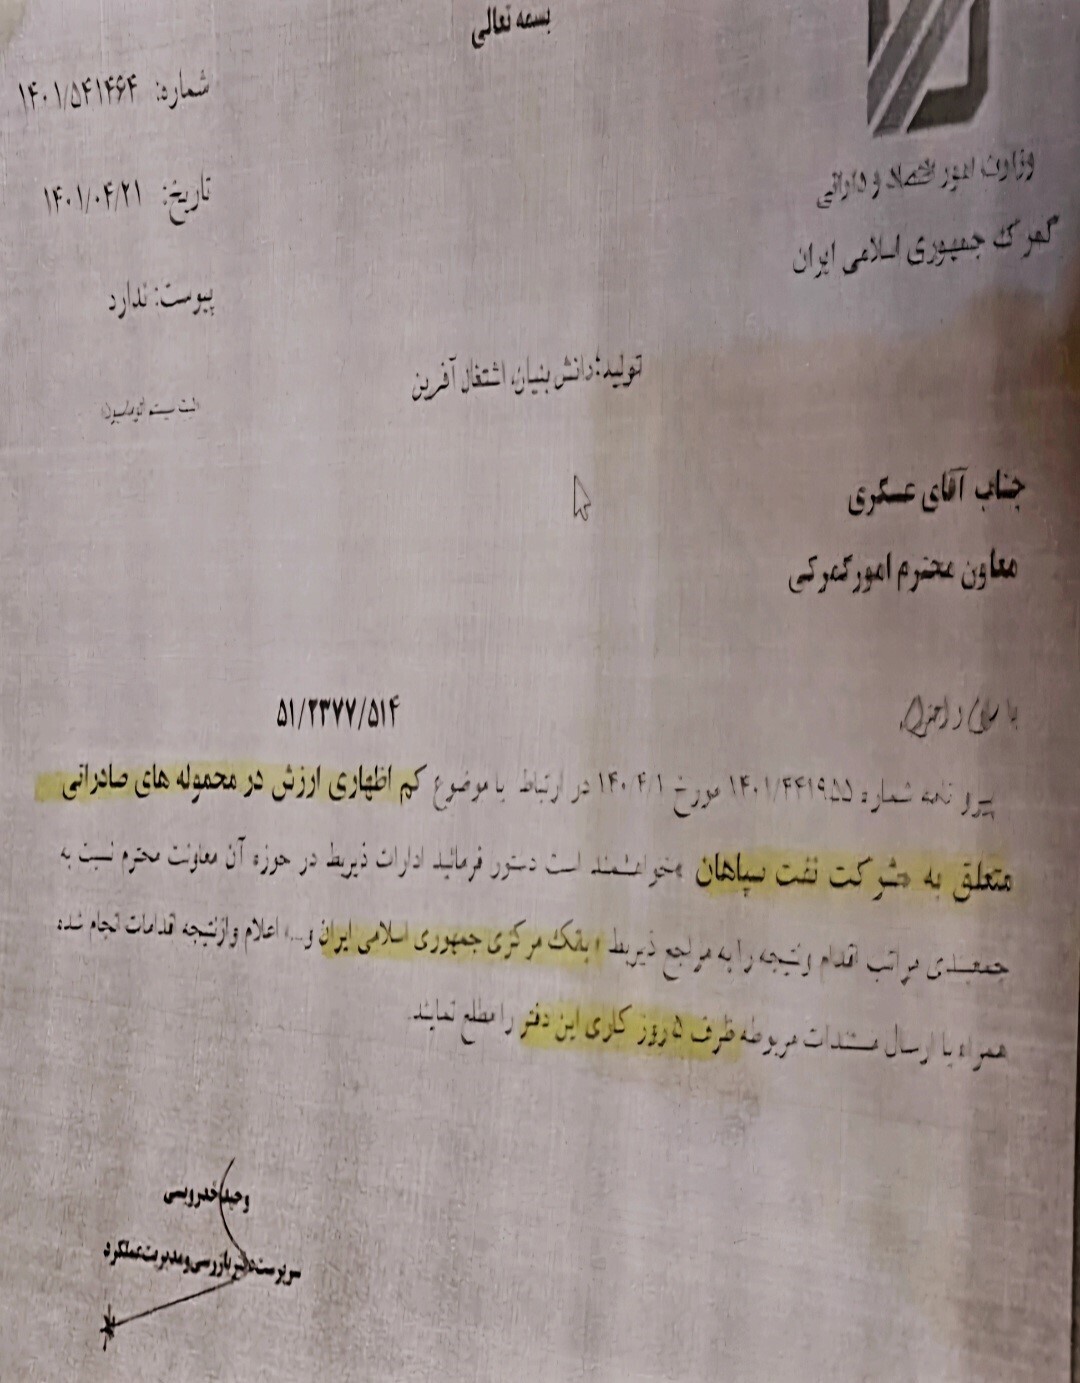 بسمه تعالی
وزارت امور اقتصاد و دارائی
گمرک جمهوری اسلامی ایران
شماره: ۱۴۰۱/۵۴۱۴۶۴
تاریخ: ۱۴۰۱/۰۴/۲۱
پیوست: ندارد
تولید؛ دانش بنیان، اشتغال آفرین
جناب آقای عسکری
معاون محترم امور گمرکی
با سلام و احترام،
۵۱/۲۳۷۷/۵۱۴
پیرو نامه شماره ۱۴۰۱/۴۴۱۹۵۵ مورخ ۱۴۰/۴/۱ در ارتباط با موضوع کم اظهاری ارزش در محموله های صادراتی
متعلق به «شرکت نفت سپاهان» خواهشمند است دستور فرمائید ادارات ذیربط در حوزه آن معاونت محترم نسبت به
جمعبندی مراتب اقدام ونتیجه را به مراجع ذیربط « بانک مرکزی جمهوری اسلامی ایران و...» اعلام وازنتیجه اقدامات انجام شده
همراه با ارسال مستندات مربوطه ظرف ۵ روز کاری این دفتر را مطلع نمایند.
وحید
سرپرست دفتر بازرسی و مدیریت عملکرد